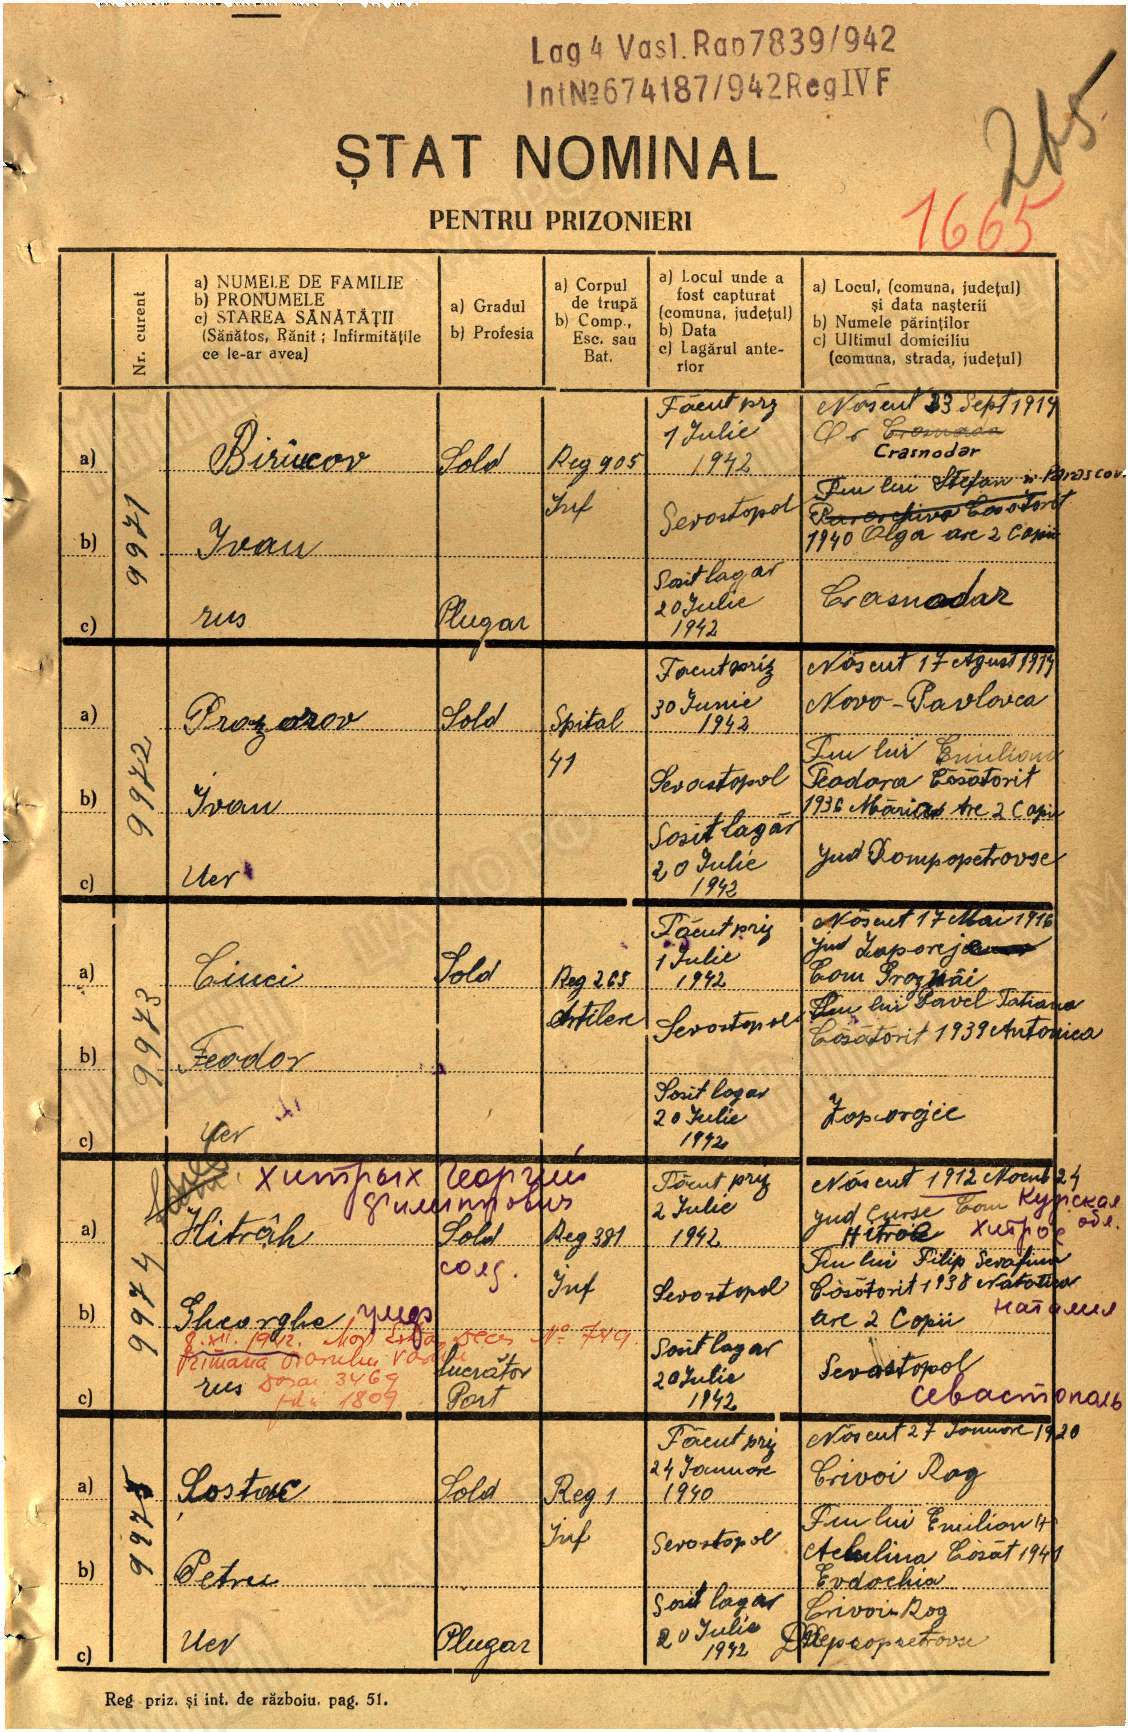 Lag 4 Vasl. Rap 7839/942
Int№674187/942 Reg IV F
265.
ȘTAT NOMINAL
PENTRU PRIZONIERI
1665
Nr. curent
a) NUMELE DE FAMILIE
b) PRONUMELE
c) STAREA SĂNĂTĂȚII
(Sănătos, Rănit ; Infirmitățile
ce le-ar avea)
a) Gradul
b) Profesia
a) Corpul
de trupă
b) Comp.,
Esc. sau
Bat.
a) Locul unde a
fost capturat
(comuna, județul)
b) Data
c) Lagărul ante-
rior
a) Locul, (comuna, județul)
și data nașterii
b) Numele părinților
c) Ultimul domiciliu
(comuna, strada, județul)
9971
a) Biriucov
b) Ivan
c) rus
Sold
Plugar
Reg 905
Inf
Făcut priz
1 Iulie
1942
Sevostopol
Sosit lagar
20 Iulie
1942
Născut 23 Sept 1914
Or
Crasnodar
Fiu lui Stefan și Parascov
Căsătorit
1940 Olga are 2 Copii
Crasnodar
9972
a) Prozorov
b) Ivan
c) Ucr
Sold
Spital
41
Făcut priz
30 Iunie
1942
Sevastopol
Sosit lagăr
20 Iulie
1942
Născut 17 Agust 1914
Novo-Pavlovca
Fiu lui Emilian
Feodora Căsătorit
1936 Are 2 Copii
Jud
9973
a) Ciuci
b) Feodor
c) Ucr
Sold
Reg 265
Artilere
Făcut priz
1 Iulie
1942
Sevostopol
Sosit lagar
20 Iulie
1942
Născut 17 Mai 1916
Jud Zaporoj
Com
Fiu lui Pavel Tatiana
Căsătorit 1939 Antonica
Zaporojie
9974
Хитрых Георгий
Филиппович
a) Hitrâh
b) Gheorghe умер
8.XII.1942. Nº 749.
Primăria orașului
Dosar 3469
fila 1809
c) rus
Sold
солд.
lucrător
Port
Reg 381
Inf
Făcut priz
2 Iulie
1942
Sevostopol
Sosit lagar
20 Iulie
1942
Născut 1912 Noemb 24
jud Curse Com Курская
Hitroe Хитрое обл.
Fiu lui Filip Serafima
Căsătorit 1938 Natalia
are 2 Copii Наталия
Sevastopol
Севастополь
9975
a) Șostac
b) Petru
c) Ucr
Sold
Plugar
Reg 1
Inf
Făcut priz
24 Ianuare
1940
Sevostopol
Sosit lagar
20 Iulie
1942
Născut 27 Ianuare 1920
Crivoi Rog
Fiu lui Emilian
Aculina Căsăt 1941
Evdochia
Crivoi-Rog
Reg priz. și int. de războiu. pag. 51.